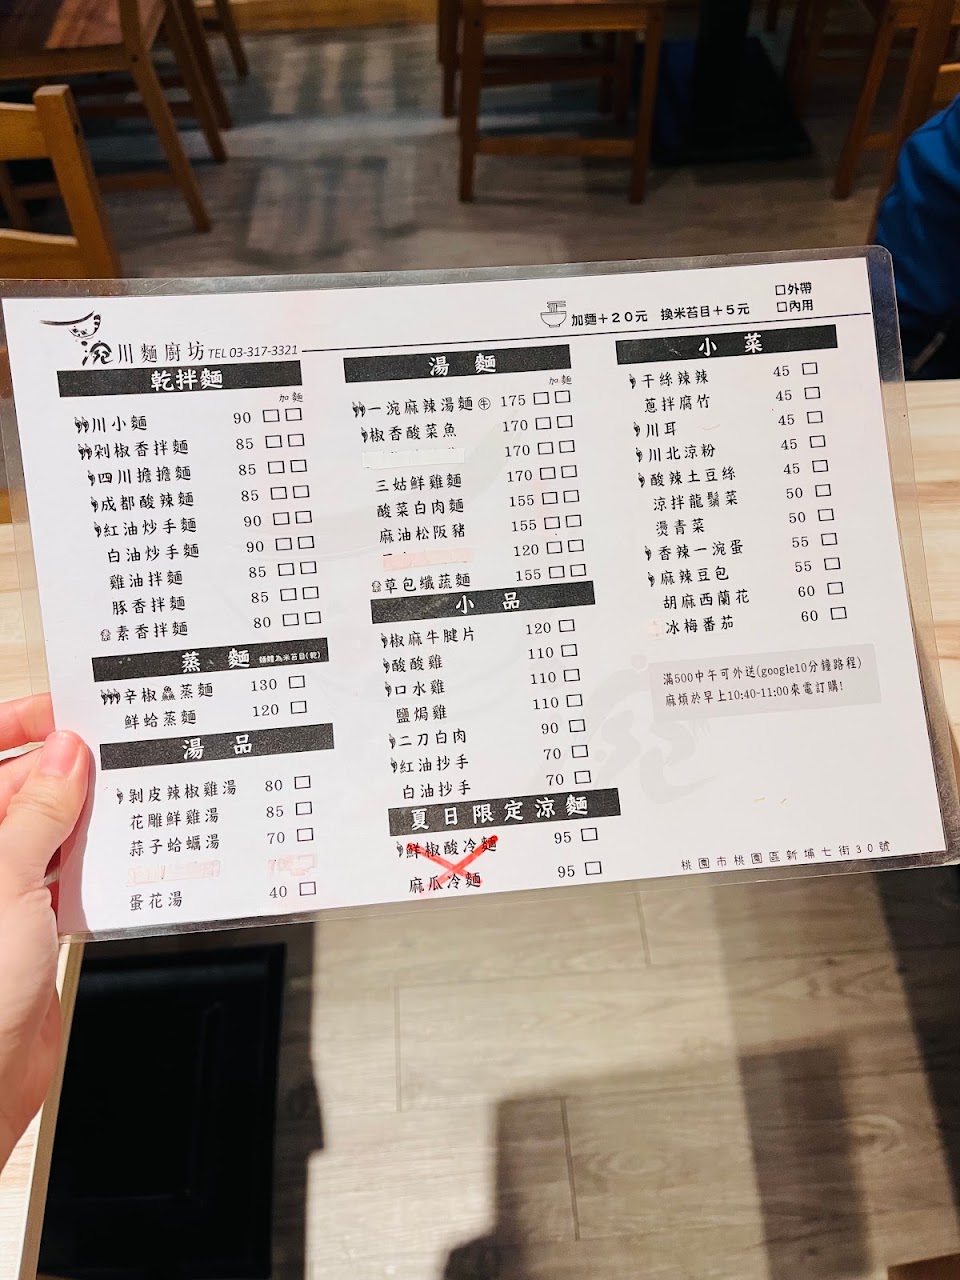 浣川麵廚坊 TEL 03-317-3321
加麵+20元 換米苔目+5元
□外帶
□內用
乾拌麵
加麵
川小麵 90 □□
剁椒香拌麵 85 □□
四川擔擔麵 85 □□
成都酸辣麵 85 □□
紅油炒手麵 90 □□
白油炒手麵 90 □□
雞油拌麵 85 □□
豚香拌麵 85 □□
素香拌麵 80 □□
蒸麵 麵體為米苔目(乾)
辛椒蒸麵 130 □
鮮蛤蒸麵 120 □
湯品
剝皮辣椒雞湯 80 □
花雕鮮雞湯 85 □
蒜子蛤蠣湯 70 □
蛋花湯 40 □
湯麵
加麵
一浣麻辣湯麵㊕ 175 □□
椒香酸菜魚 170 □□
170 □□
三姑鮮雞麵 170 □□
酸菜白肉麵 155 □□
麻油松阪豬 155 □□
120 □□
草包纖蔬麵 155 □□
小品
椒麻牛腱片 120 □
酸酸雞 110 □
口水雞 110 □
鹽焗雞 110 □
二刀白肉 90 □
紅油抄手 70 □
白油抄手 70 □
夏日限定涼麵
鮮椒酸冷麵 95 □
麻瓜冷麵 95 □
小菜
干絲辣辣 45 □
蔥拌腐竹 45 □
川耳 45 □
川北涼粉 45 □
酸辣土豆絲 45 □
涼拌龍鬚菜 50 □
燙青菜 50 □
香辣一浣蛋 55 □
麻辣豆包 55 □
胡麻西蘭花 60 □
冰梅番茄 60 □
滿500中午可外送(google10分鐘路程)
麻煩於早上10:40-11:00來電訂購!
桃園市桃園區新埔七街30號